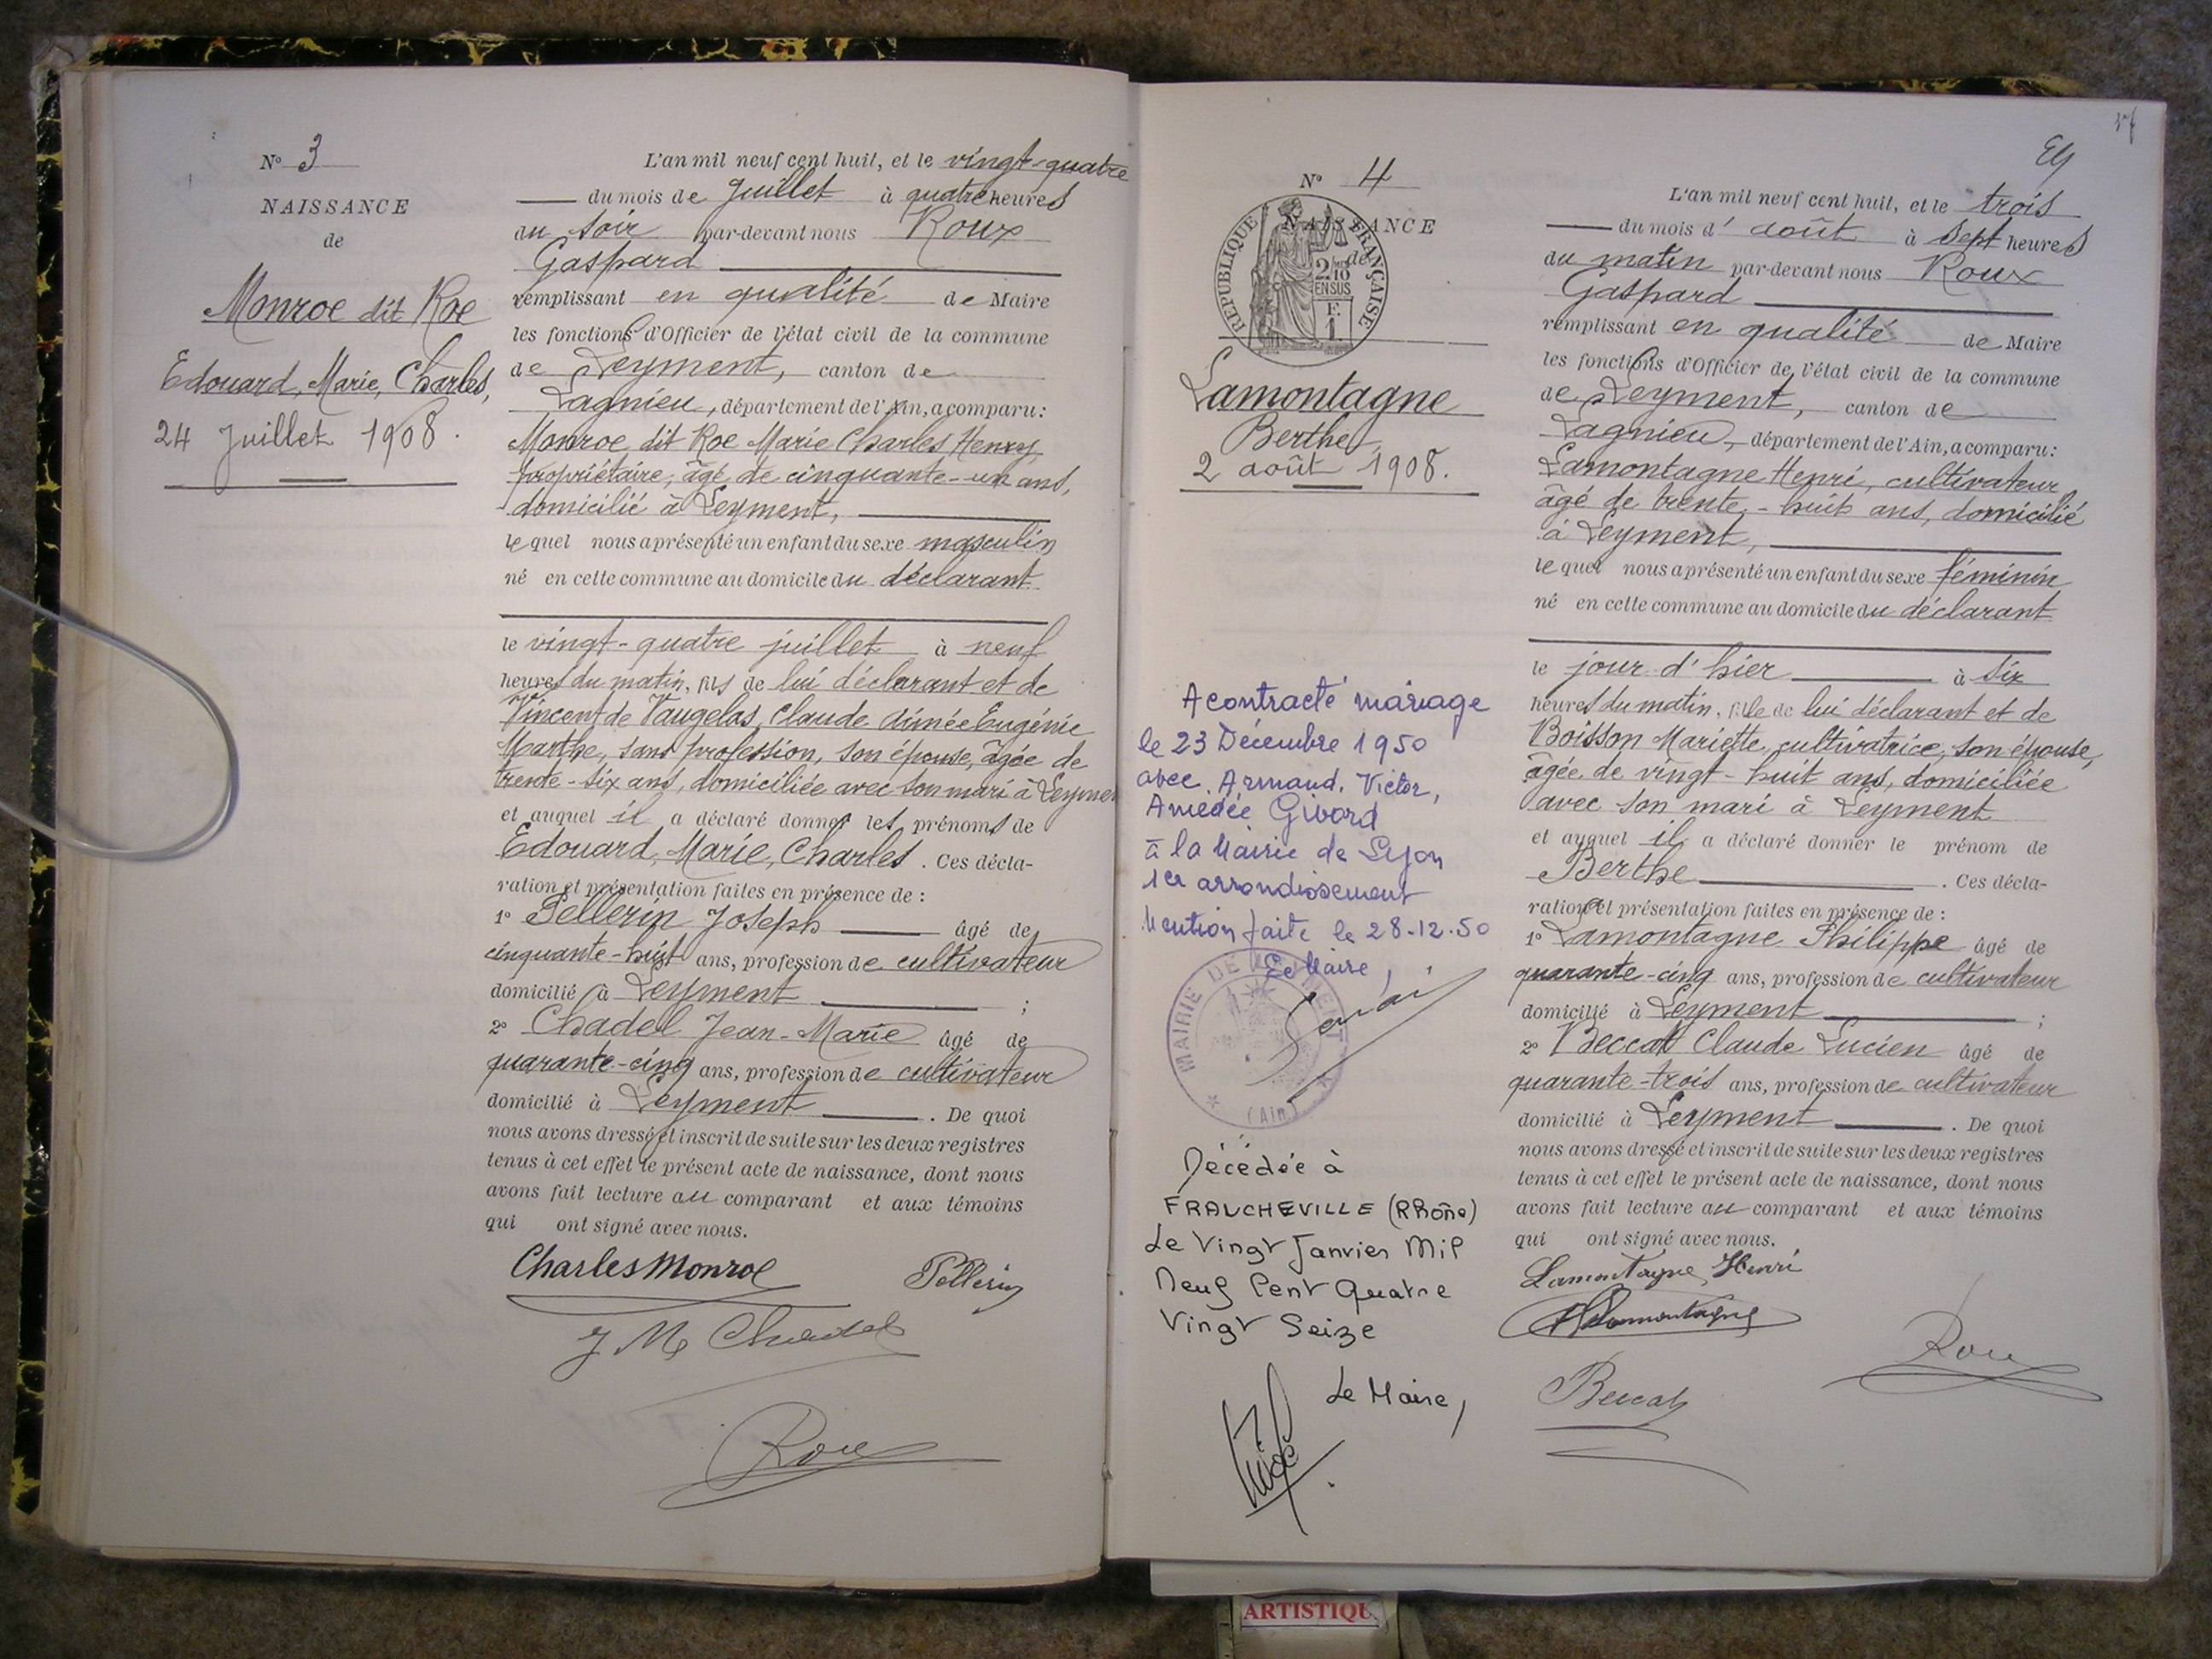 N° 3
NAISSANCE
de
Monroe dit Roe
Edouard, Marie, Charles,
24 Juillet 1908.
L'an mil neuf cent huit, et le vingt-quatre
du mois de Juillet à quatre heures
du soir par-devant nous Roux
Gaspard
remplissant en qualité de Maire
les fonctions d'Officier de l'état civil de la commune
de Leyment, canton de
Lagnieu, département de l'Ain, a comparu:
Monroe dit Roe Marie Charles Henry,
propriétaire, âgé de cinquante-un ans,
domicilié à Leyment,
lequel nous a présenté un enfant du sexe masculin
né en cette commune au domicile du déclarant
le vingt-quatre juillet à neuf
heures du matin, fils de lui déclarant et de
Vincent de Vaugelas, Claude Aimée Eugénie
Marthe, sans profession, son épouse, âgée de
trente-six ans, domiciliée avec son mari à Leymen
et auquel il a déclaré donner les prénoms de
Edouard, Marie, Charles. Ces décla-
ration et présentation faites en présence de :
1° Pellerin Joseph âgé de
cinquante-huit ans, profession de cultivateur
domicilié à Leyment ;
2° Chadel Jean-Marie âgé de
quarante-cinq ans, profession de cultivateur
domicilié à Leyment. De quoi
nous avons dressé et inscrit de suite sur les deux registres
tenus à cet effet le présent acte de naissance, dont nous
avons fait lecture au comparant et aux témoins
qui ont signé avec nous.
Charles Monroe Pellerin
J M Chadel
Roux
N° 4
NAISSANCE
de
REPUBLIQUE FRANÇAISE
2/10 EN SUS
F. 1.
Lamontagne
Berthe
2 août 1908.
A contracté mariage
le 23 Décembre 1950
avec Armand, Victor,
Amédée Givord
à la Mairie de Lyon
1er arrondissement
Mention faite le 28-12-50
Le Maire,
MAIRIE DE LEYMENT
(Ain)
Décédée à
FRANCHEVILLE (Rhône)
Le Vingt Janvier Mil
Neuf Cent Quatre
Vingt Seize
Le Maire,
L'an mil neuf cent huit, et le trois
du mois d'août à sept heures
du matin par-devant nous Roux
Gaspard
remplissant en qualité de Maire
les fonctions d'Officier de l'état civil de la commune
de Leyment, canton de
Lagnieu, département de l'Ain, a comparu:
Lamontagne Henri, cultivateur
âgé de trente-huit ans, domicilié
à Leyment,
lequel nous a présenté un enfant du sexe féminin
né en cette commune au domicile du déclarant
le jour d'hier à six
heures du matin, fille de lui déclarant et de
Boisson Mariette, cultivatrice, son épouse,
âgée de vingt-huit ans, domiciliée
avec son mari à Leyment
et auquel il a déclaré donner le prénom de
Berthe. Ces décla-
ration et présentation faites en présence de :
1° Lamontagne Philippe âgé de
quarante-cinq ans, profession de cultivateur
domicilié à Leyment ;
2° Beccat Claude Lucien âgé de
quarante-trois ans, profession de cultivateur
domicilié à Leyment. De quoi
nous avons dressé et inscrit de suite sur les deux registres
tenus à cet effet le présent acte de naissance, dont nous
avons fait lecture au comparant et aux témoins
qui ont signé avec nous.
Lamontagne Henri
Lamontagne
Roux
Beccat
ARTISTIQU